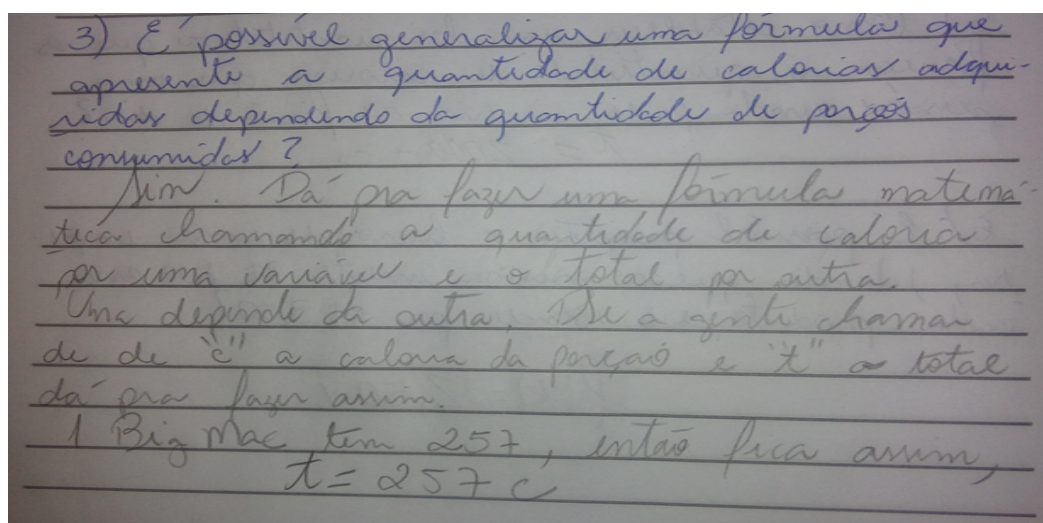 3) É possível generalizar uma fórmula que
apresente a quantidade de calorias adqui-
ridas dependendo da quantidade de porções
consumidas?
Sim. Dá pra fazer uma fórmula matemá-
tica chamando a quantidade de caloria
por uma variável e o total por outra.
Uma depende da outra. Se a gente chamar
de de "c" a caloria da porção e "t" o total
dá pra fazer assim.
1 Big Mac tem 257, então fica assim,
t = 257 c